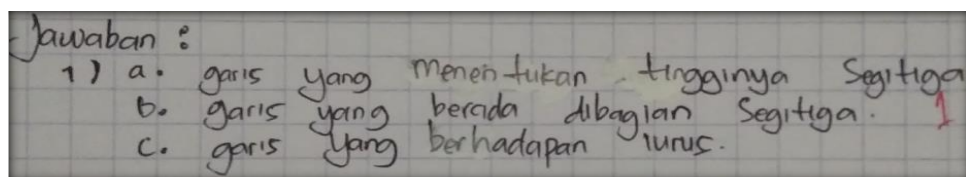 Jawaban :
1) a. garis yang menentukan tingginya Segitiga
b. garis yang berada dibagian Segitiga. 1
c. garis yang berhadapan lurus.